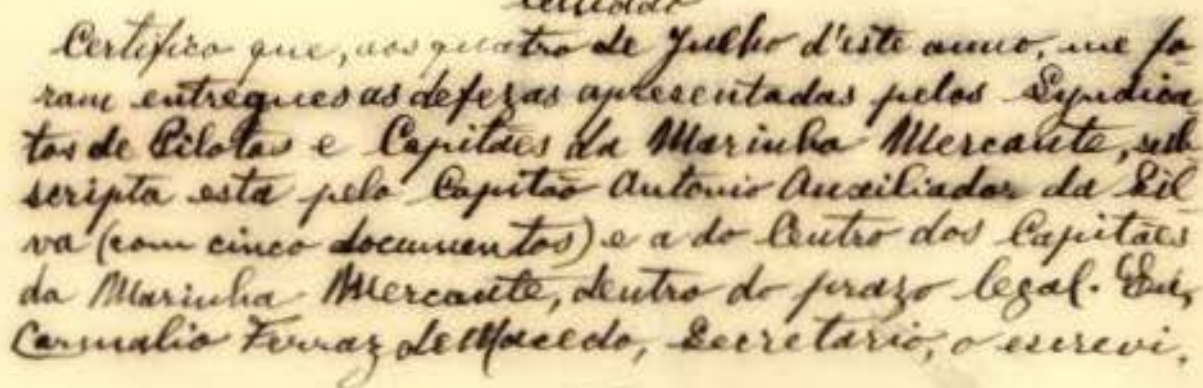 Certifico que, aos quatro de Julho d'este anno, me fo
ram entregues as defezas apresentadas pelos Syndica
tos de Pilotos e Capitães da Marinha Mercante, sub
scripta esta pelo Capitão Antonio Auxiliador da Sil
va (com cinco documentos) e a do Centro dos Capitães
da Marinha Mercante, dentro do prazo legal. Eu,
Ferraz de Macedo, Secretario, o escrevi,